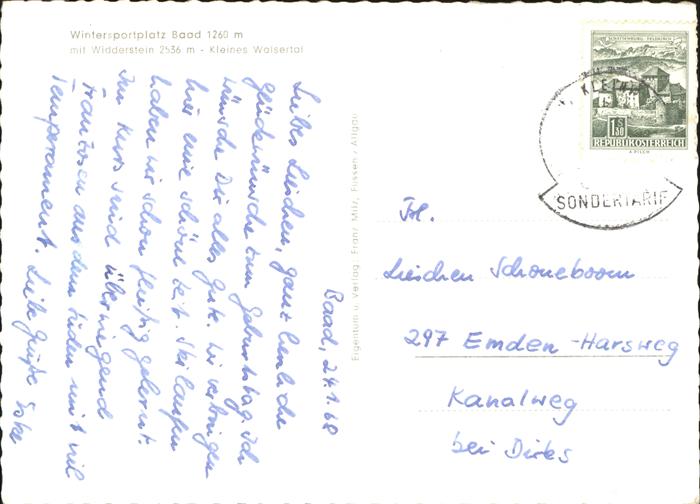 Wintersportplatz Baad 1260 m
mit Widderstein 2536 m - Kleines Walsertal
Baad, 24.1.68
Liebes Lieschen, ganz herzliche
Glückwünsche zum Geburtstag. Ich
wünsche Dir alles Gute. Wir verbringen
hier eine schöne Zeit. Skilaufen
haben wir schon fleißig gelernt.
Im Kurs sind überwiegend
Franzosen aus dem Süden mit viel
Temperament. Liebe Grüße Eske
Eigentum u. Verlag: Franz Milz, Füssen / Allgäu
SCHATTENBURG - FELDKIRCH
1 S 50
REPUBLIK ÖSTERREICH
A. PILCH
KLEIN
SONDERTARIF
Frl.
Lieschen Schoneboom
297 Emden-Harsweg
Kanalweg
bei Dirks